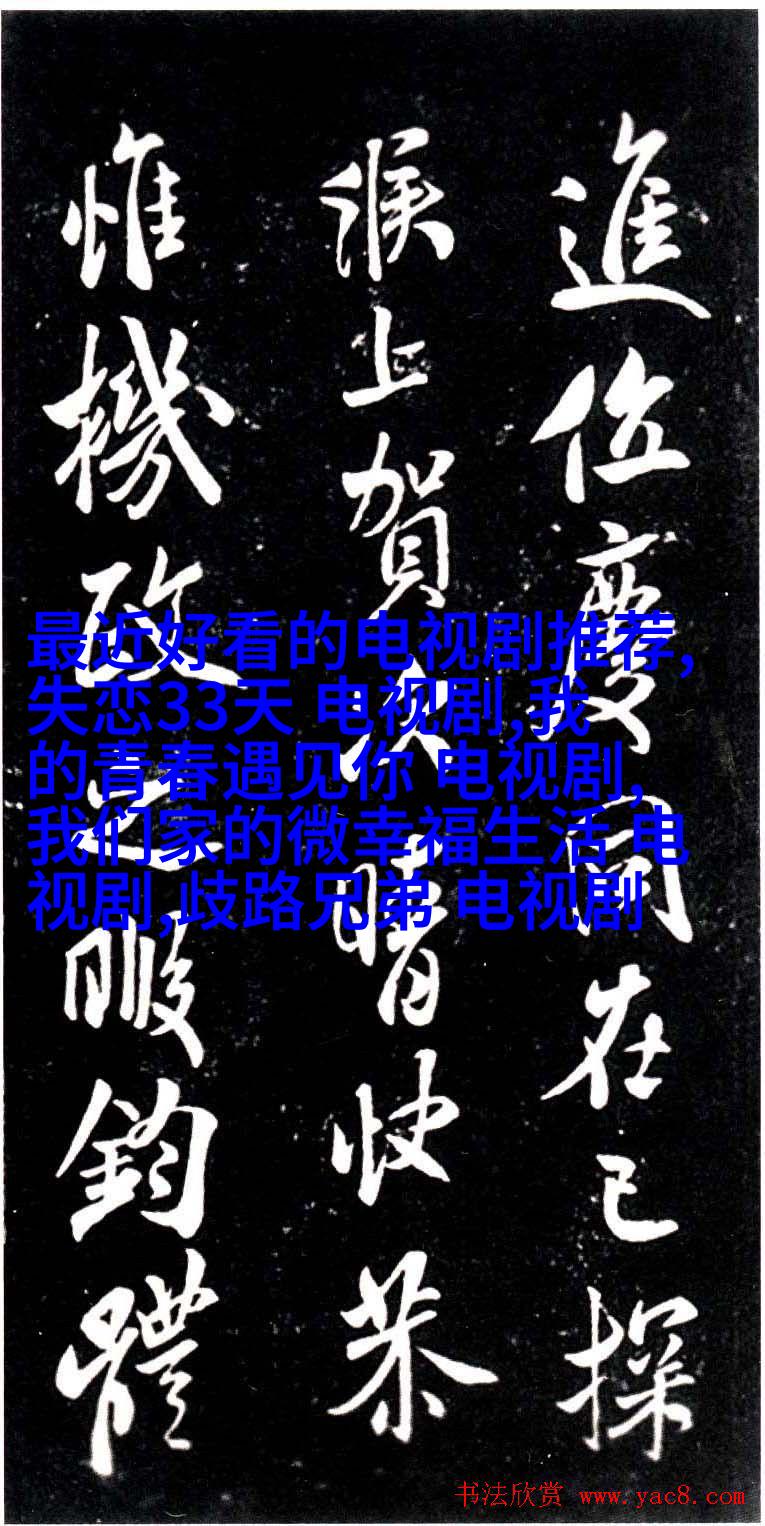 進位慶同在已探
候上賀次晴快恭
惟機政之暇鈞體
最近好看的电视剧推荐,
失恋33天 电视剧,我
的青春遇见你 电视剧,
我们家的微幸福生活 电
视剧,歧路兄弟 电视剧
书法欣赏 www.yac8.com